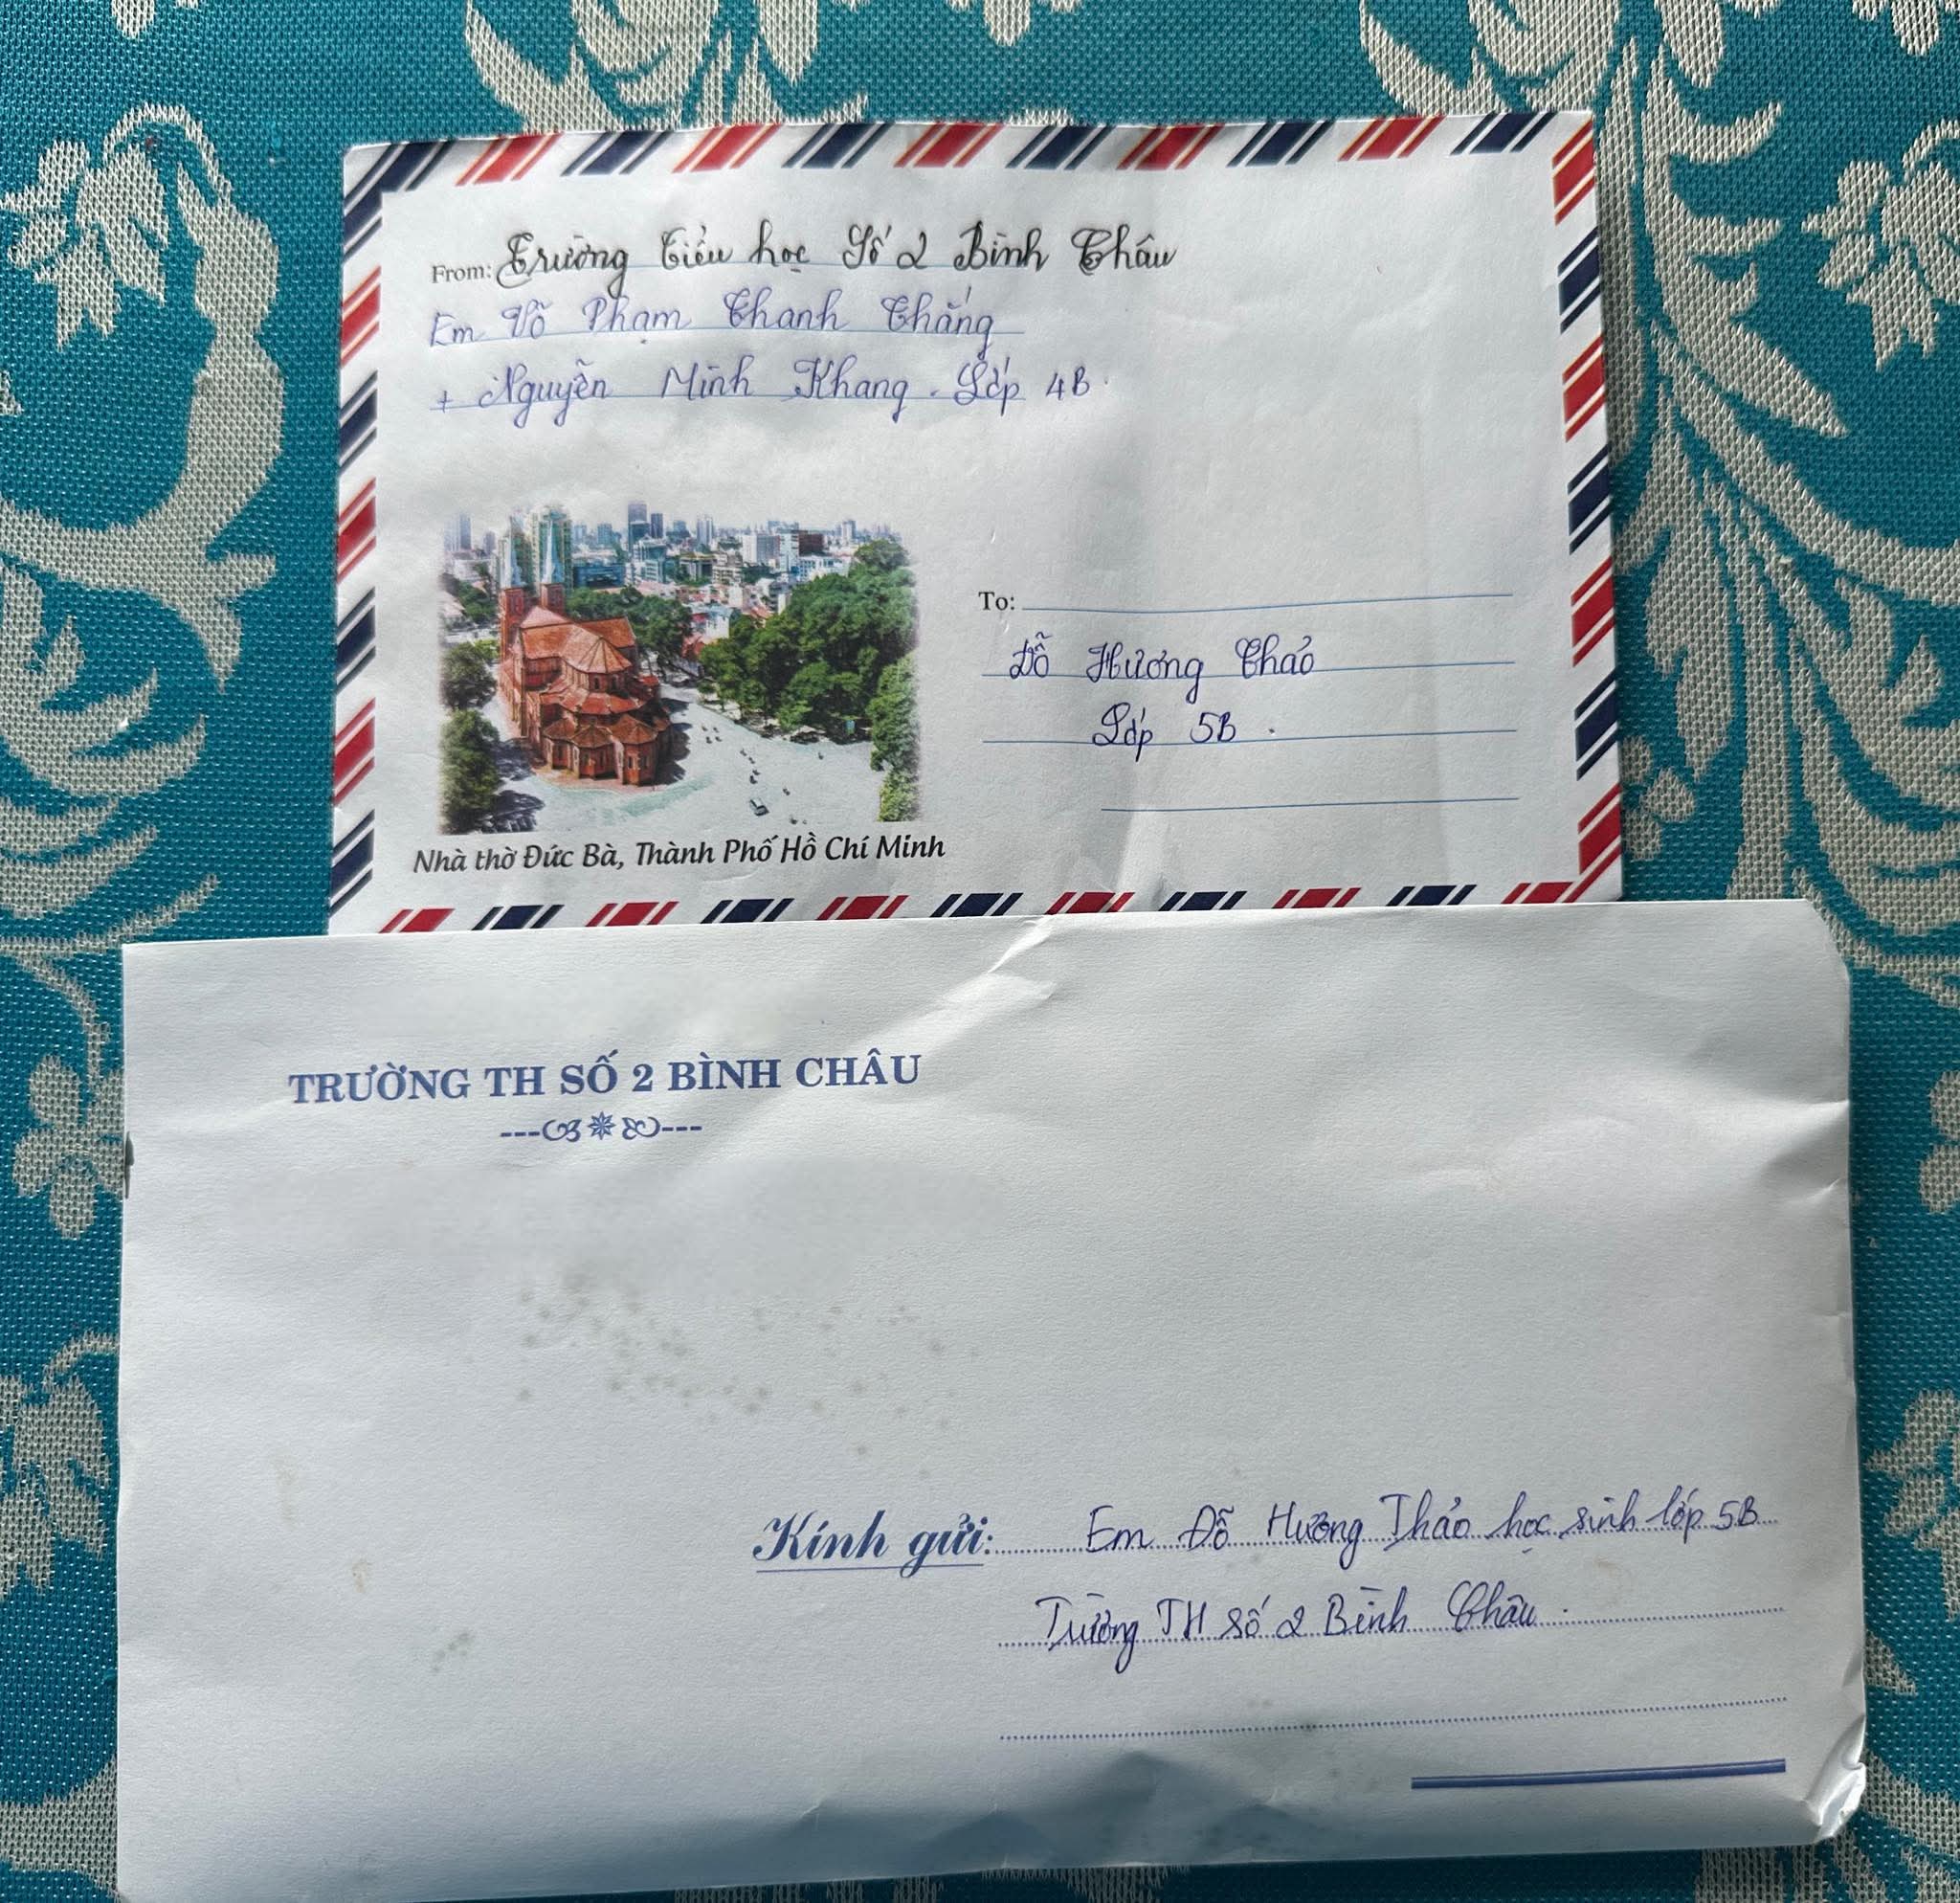 From: Trường Tiểu học Số 2 Bình Châu
Em Võ Phạm Thanh Thắng
+ Nguyễn Minh Khang. Lớp 4B.
To:
Đỗ Hương Thảo
Lớp 5B.
Nhà thờ Đức Bà, Thành Phố Hồ Chí Minh
TRƯỜNG TH SỐ 2 BÌNH CHÂU
Kính gửi: Em Đỗ Hương Thảo học sinh lớp 5B
Trường TH Số 2 Bình Châu.